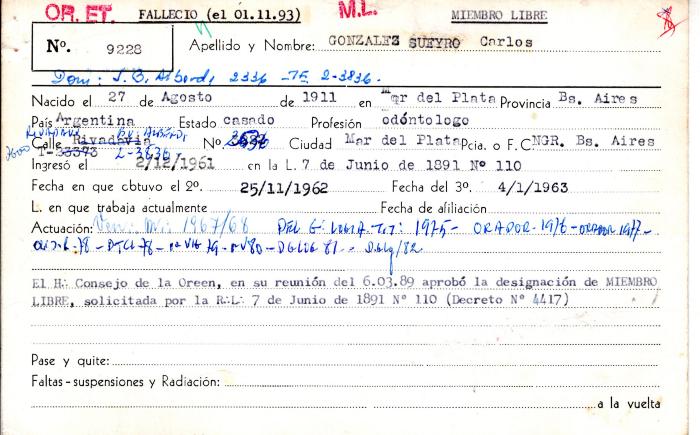 OR. ET. FALLECIO (el 01.11.93) M.L. MIEMBRO LIBRE
No. 9228 Apellido y Nombre: GONZALEZ SUEYRO Carlos
Dom: J. B. Alberdi 2336 - TE 2-3836.
Nacido el 27 de Agosto de 1911 en Mar del Plata Provincia Bs. Aires
País Argentina Estado casado Profesión odóntologo
Calle Rivadavia Nº Ciudad Mar del Plata Pcia. o F.C. NGR. Bs. Aires
T-33373 2-3636
Ingresó el 2/12/1961 en la L. 7 de Junio de 1891 Nº 110
Fecha en que obtuvo el 2º. 25/11/1962 Fecha del 3º. 4/1/1963
L. en que trabaja actualmente Fecha de afiliación
Actuación: Ven: 1967/68 DEL G: LOGIA TIT: 1975 - ORADOR-1976 - ORADOR 1977 -
78 - 78 - 79 - 80 - 81 - Deleg/82
El H∴ Consejo de la Oreen, en su reunión del 6.03.89 aprobó la designación de MIEMBRO
LIBRE, solicitada por la R∴L∴ 7 de Junio de 1891 Nº 110 (Decreto Nº 4417)
Pase y quite:
Faltas - suspensiones y Radiación:
a la vuelta